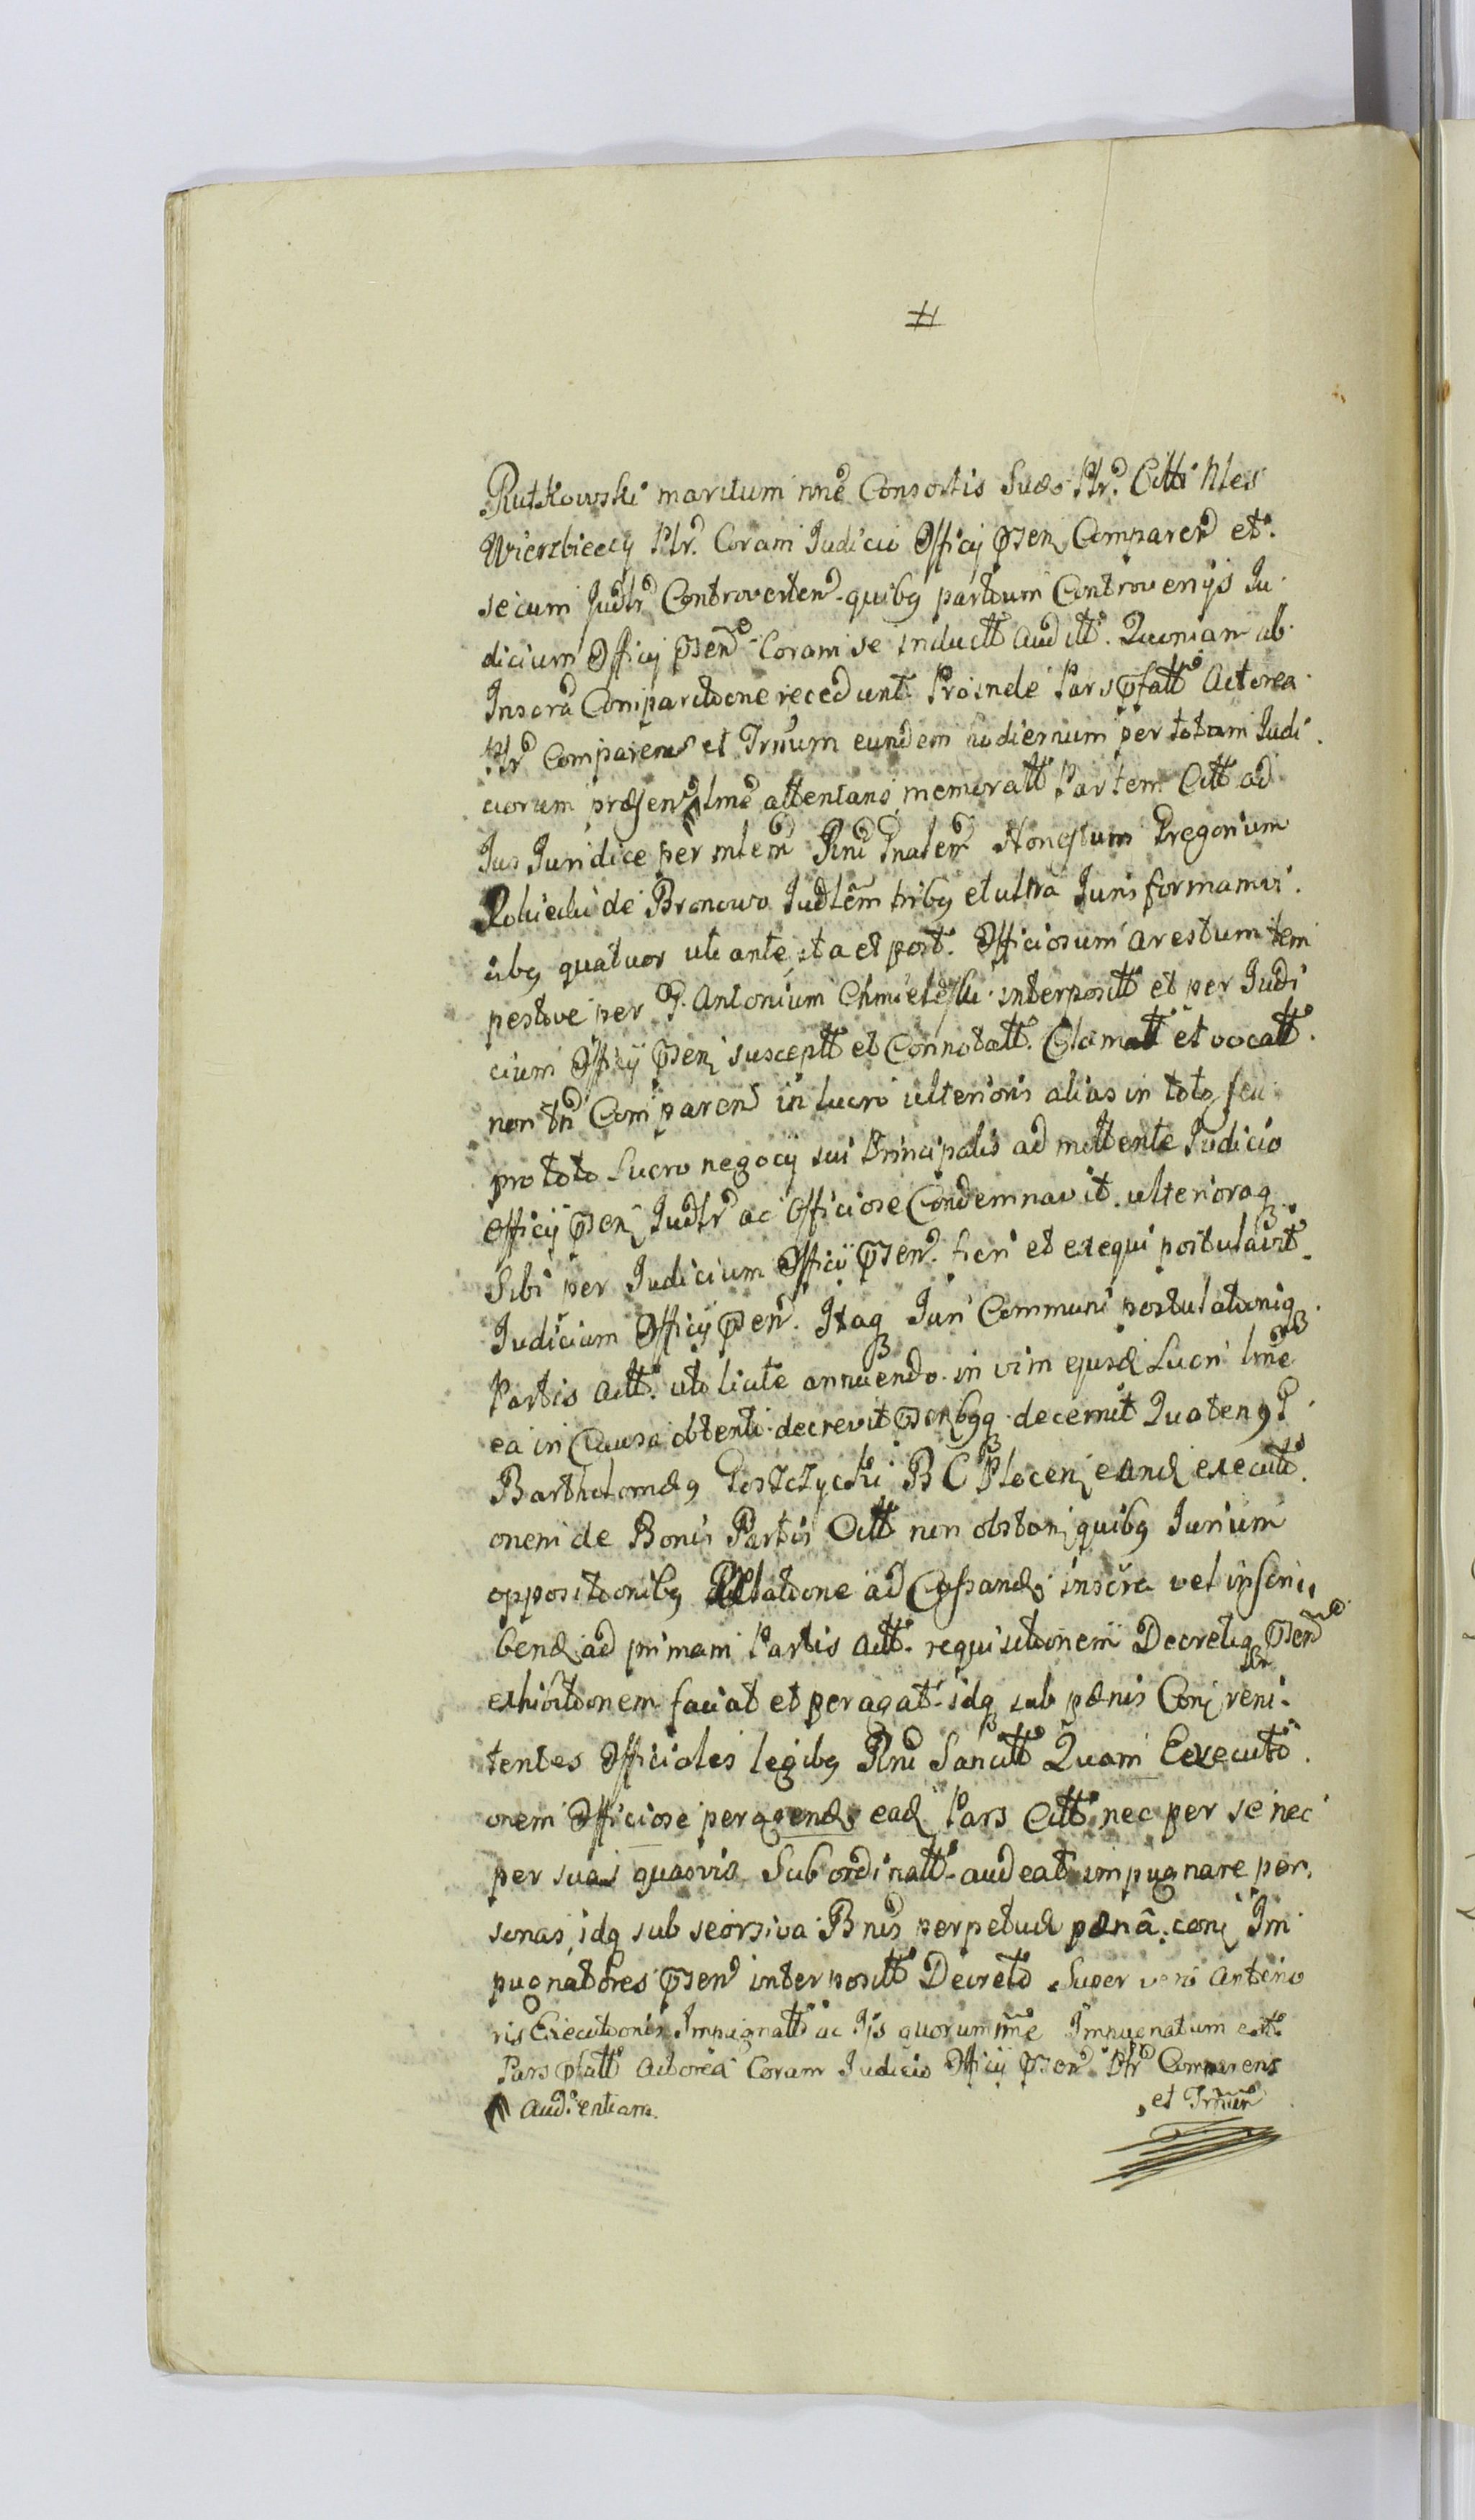 #
Rutkowski maritum nne Consortis Suæ Ptr. Citti Nles
Wierzbieccy Ptr. Coram Judicio Officij psen Comparen et
secum Judtr Controverten quibg partium Controversijs Ju
dicium Officij psen Coram se inductt auditt. Quoniam ab
Inscra Comparitione recedunt. Proinde Pars pfatt Actorea
Ptr Comparens et Trnum eundem hodiernum per totam Judi
ciorum præsen lme attentans memoratt Partem Citt ad
Jus Juridice per mtem Rni Gnalem Honestum Gregorium
de Bronowo Judlem tribg et ultra Juris formam vi
cibg quatuor uti ante ita et post Officiosum arestum tem
pestive per G. Antonium Chmieleski interpositt et per Judi
cium Officij psen susceptt et Connotatt. Clamatt et vocatt.
non tn Comparen in lucro ulterioris alias in toto seu
pro toto Lucro negocij sui Principalis admittente Judicio
Officij psen Judtr ac Officiose Condemnavit. ulterioraq
Sibi per Judicium Officij psen. fieri et exequi postulavit.
Judicium Officij psen. Itaq Juri Communi postulationiq
Partis Actt. uti licite annuendo in vim ejusd Lucri lme
ea in Causa obtenti decrevit psenbgq decernit Quateng G
Bartholomæg Goszczycki B C Plocen eand executi
onem de Bonis Partis Citt non obstan quibg Jurium
oppositionibg Citatione ad Cassand inscra vel inscri
bend ad primam Partis Actt. requisitionem Decretiq psen
exhibitionem faciat et peragat idq sub pænis Con reni
tentes Officiales legibg Rni Sancitt Quam Executi
onem Officiose peragend ead Pars Citt nec per se nec
per suas quasvis Subordinatt audeat impugnare per
sonas, idq sub seorsiva Bnis perpetuæ pænâ con Im
pugnatores psen interpositt Decreto Super vero Anterio
ris Executionis Impugnatt ac Ijs quorum nne Impugnatum est
Pars pfatt Actorea Coram Judicio Officij psen Ptr Comparens
Audientiam
et Trnum